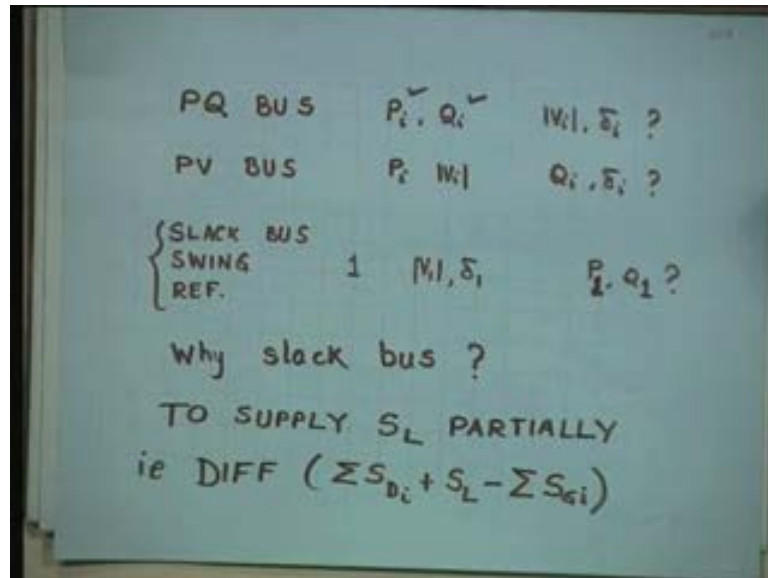 PQ BUS P_i, Q_i |V_i|, δ_i ?
PV BUS P_i |V_i| Q_i, δ_i ?
SLACK BUS
SWING 1 |V_1|, δ_1 P_1, Q_1 ?
REF.
Why slack bus ?
TO SUPPLY S_L PARTIALLY
ie DIFF (ΣS_Di + S_L - ΣS_Gi)